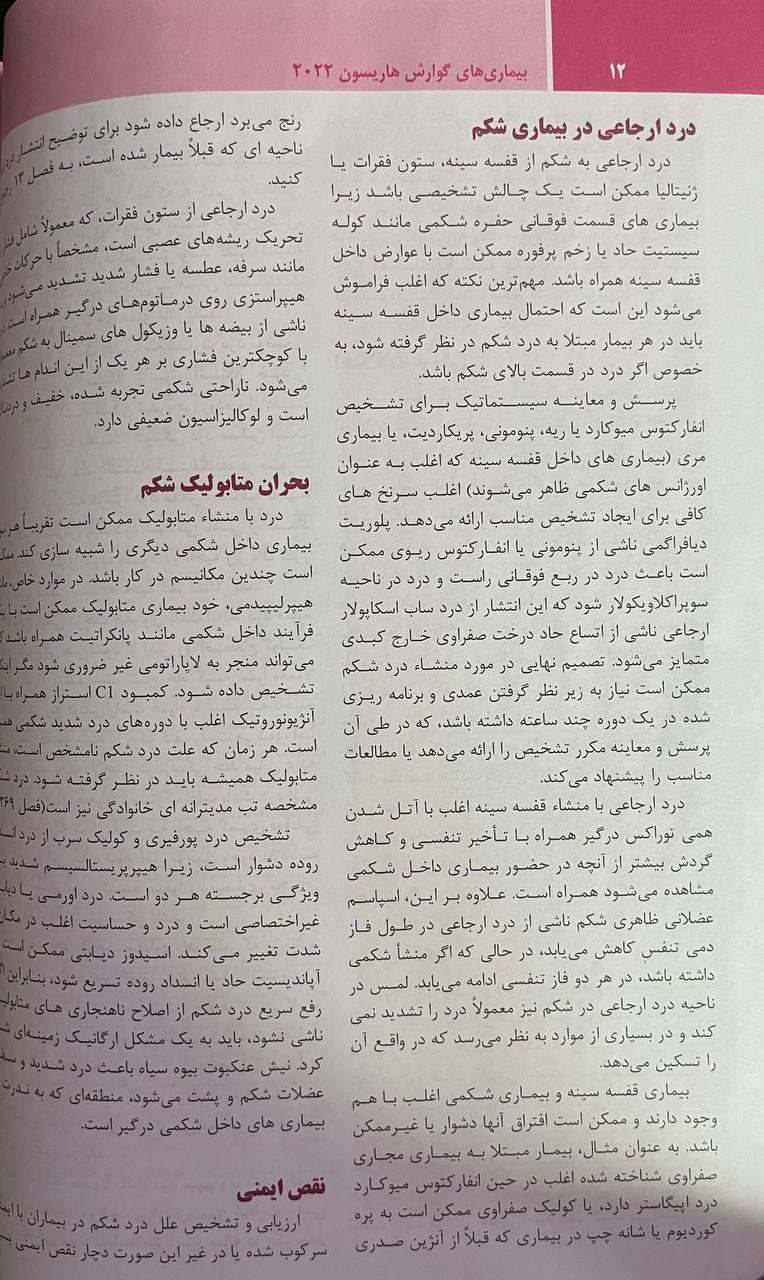 ۱۲
بیماری‌های گوارش هاریسون ۲۰۲۲
درد ارجاعی در بیماری شکم
درد ارجاعی به شکم از قفسه سینه، ستون فقرات یا
ژنیتالیا ممکن است یک چالش تشخیصی باشد زیرا
بیماری های قسمت فوقانی حفره شکمی مانند کوله
سیستیت حاد یا زخم پرفوره ممکن است با عوارض داخل
قفسه سینه همراه باشد. مهم‌ترین نکته که اغلب فراموش
می‌شود این است که احتمال بیماری داخل قفسه سینه
باید در هر بیمار مبتلا به درد شکم در نظر گرفته شود، به
خصوص اگر درد در قسمت بالای شکم باشد.
پرسش و معاینه سیستماتیک برای تشخیص
انفارکتوس میوکارد یا ریه، پنومونی، پریکاردیت، یا بیماری
مری (بیماری های داخل قفسه سینه که اغلب به عنوان
اورژانس های شکمی ظاهر می‌شوند) اغلب سرنخ های
کافی برای ایجاد تشخیص مناسب ارائه می‌دهد. پلوریت
دیافراگمی ناشی از پنومونی یا انفارکتوس ریوی ممکن
است باعث درد در ربع فوقانی راست و درد در ناحیه
سوپراکلاویکولار شود که این انتشار از درد ساب اسکاپولار
ارجاعی ناشی از اتساع حاد درخت صفراوی خارج کبدی
متمایز می‌شود. تصمیم نهایی در مورد منشاء درد شکم
ممکن است نیاز به زیر نظر گرفتن عمدی و برنامه ریزی
شده در یک دوره چند ساعته داشته باشد، که در طی آن
پرسش و معاینه مکرر تشخیص را ارائه می‌دهد یا مطالعات
مناسب را پیشنهاد می‌کند.
درد ارجاعی با منشاء قفسه سینه اغلب با آتل شدن
همی توراکس درگیر همراه با تأخیر تنفسی و کاهش
گردش بیشتر از آنچه در حضور بیماری داخل شکمی
مشاهده می‌شود همراه است. علاوه بر این، اسپاسم
عضلانی ظاهری شکم ناشی از درد ارجاعی در طول فاز
دمی تنفس کاهش می‌یابد، در حالی که اگر منشأ شکمی
داشته باشد، در هر دو فاز تنفسی ادامه می‌یابد. لمس در
ناحیه درد ارجاعی در شکم نیز معمولاً درد را تشدید نمی
کند و در بسیاری از موارد به نظر می‌رسد که در واقع آن
را تسکین می‌دهد.
بیماری قفسه سینه و بیماری شکمی اغلب با هم
وجود دارند و ممکن است افتراق آنها دشوار یا غیرممکن
باشد. به عنوان مثال، بیمار مبتلا به بیماری مجاری
صفراوی شناخته شده اغلب در حین انفارکتوس میوکارد
درد اپیگاستر دارد، یا کولیک صفراوی ممکن است به پره
کوردیوم یا شانه چپ در بیماری که قبلاً از آنژین صدری
رنج می‌برد ارجاع داده شود برای توضیح انتشار درد
ناحیه ای که قبلاً بیمار شده است، به فصل ۱۳
کنید.
درد ارجاعی از ستون فقرات، که معمولاً شامل فشار
تحریک ریشه‌های عصبی است، مشخصاً با حرکات
مانند سرفه، عطسه یا فشار شدید تشدید می‌شود
هیپراستزی روی درماتوم‌های درگیر همراه است.
ناشی از بیضه ها یا وزیکول های سمینال به شکم
با کوچکترین فشاری بر هر یک از این اندام ها
می‌شود. ناراحتی شکمی تجربه شده، خفیف و
است و لوکالیزاسیون ضعیفی دارد.
بحران متابولیک شکم
درد با منشاء متابولیک ممکن است تقریباً
بیماری داخل شکمی دیگری را شبیه سازی کند.
است چندین مکانیسم در کار باشد. در موارد خاص،
هیپرلیپیدمی، خود بیماری متابولیک ممکن است با
فرآیند داخل شکمی مانند پانکراتیت همراه باشد
می‌تواند منجر به لاپاراتومی غیر ضروری شود مگر
تشخیص داده شود. کمبود C1 استراز همراه با
آنژیونوروتیک اغلب با دوره‌های درد شدید شکمی
است. هر زمان که علت درد شکم نامشخص است،
متابولیک همیشه باید در نظر گرفته شود. درد
مشخصه تب مدیترانه ای خانوادگی نیز است(فصل ۳۶۹
تشخیص درد پورفیری و کولیک سرب از درد
روده دشوار است، زیرا هیپرپریستالسیسم شدید
ویژگی برجسته هر دو است. درد اورمی یا
غیراختصاصی است و درد و حساسیت اغلب در
شدت تغییر می‌کند. اسیدوز دیابتی ممکن است
آپاندیسیت حاد یا انسداد روده تسریع شود، بنابراین
رفع سریع درد شکم از اصلاح ناهنجاری های
ناشی نشود، باید به یک مشکل ارگانیک زمینه‌ای
کرد. نیش عنکبوت بیوه سیاه باعث درد شدید و
عضلات شکم و پشت می‌شود، منطقه‌ای که به ندرت
بیماری های داخل شکمی درگیر است.
نقص ایمنی
ارزیابی و تشخیص علل درد شکم در بیماران با
سرکوب شده یا در غیر این صورت دچار نقص ایمنی